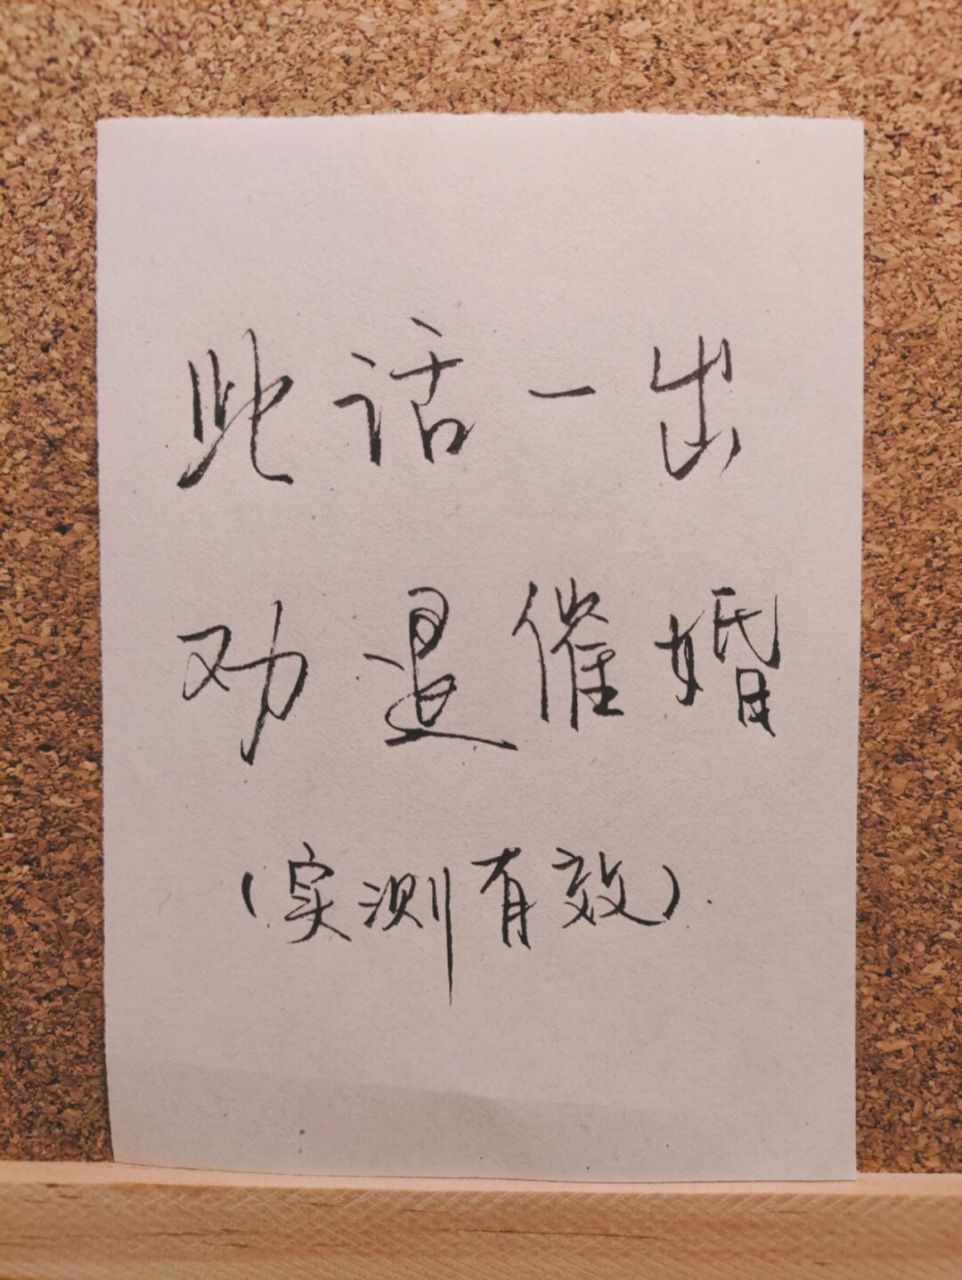 此话一出
劝退催婚
（实测有效）.